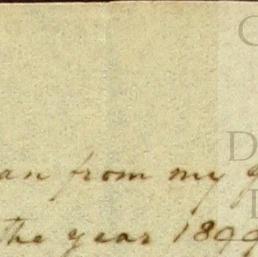 an from my g
the year 1899